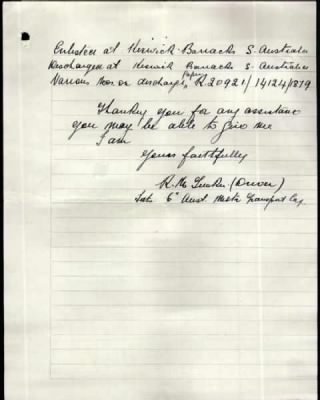 Enlisted at Keswick Barracks S. Australia
Discharged at Keswick Barracks S. Australia
Various Nos. on discharge papers, R.20921/14124/1879
Thanking you for any assistance
you may be able to give me
I am
Yours faithfully
R. (Driver)
Late 6th Aust. Motor Transport Coy